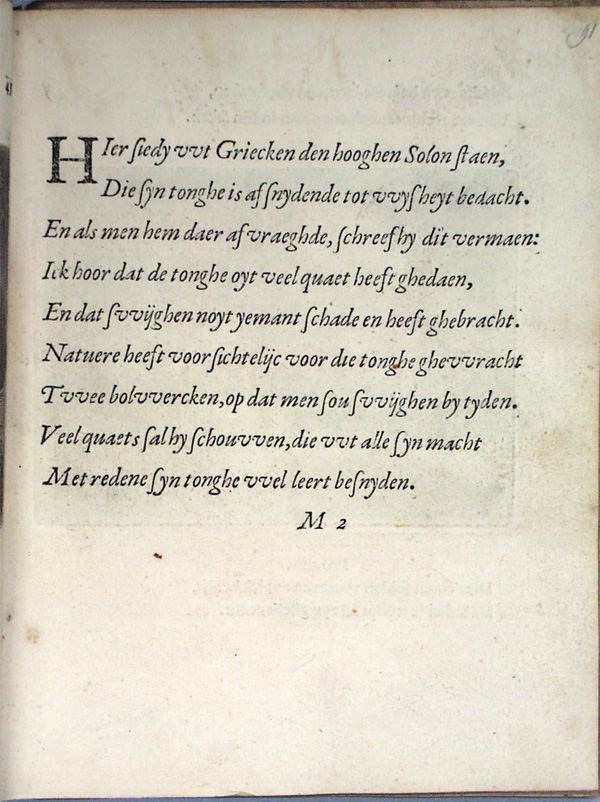 91
HIer ſiedy vvt Griecken den hooghen Solon ſtaen,
Die ſyn tonghe is afſnydende tot vvyſheyt bedacht.
En als men hem daer af vraeghde, ſchreef hy dit vermaen:
Ick hoor dat de tonghe oyt veel quaet heeft ghedaen,
En dat ſvvijghen noyt yemant ſchade en heeft ghebracht.
Natuere heeft voorſichtelijc voor die tonghe ghevvracht
Tvvee bolvvercken, op dat men ſou ſvvijghen by tyden.
Veel quaets ſal hy ſchouvven, die vvt alle ſyn macht
Met redene ſyn tonghe vvel leert beſnyden.
M 2